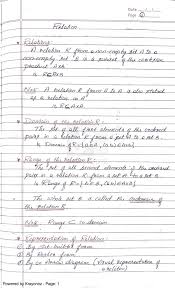 Date
Page
Relation
Relation:
A relation R from a non-empty set A to a
non-empty set B is a subset of the cartesian
product A×B
Note: A relation R from A to A is also stated
as a relation in A
Domain of the relation R:
The set of all first elements of the ordered
pairs in a relation R from a set A to set B
Range of the relation R:
The set of all second elements of the ordered
pairs in a relation R from a set A to set B
The whole set B is called the codomain of
the relation R.
Note: Range ⊆ codomain
Representation of Relation:
By Set-builder form
By Roster form
By an Arrow diagram (Visual representation of
a relation)
Powered by Kwiqnotes - Page: 1